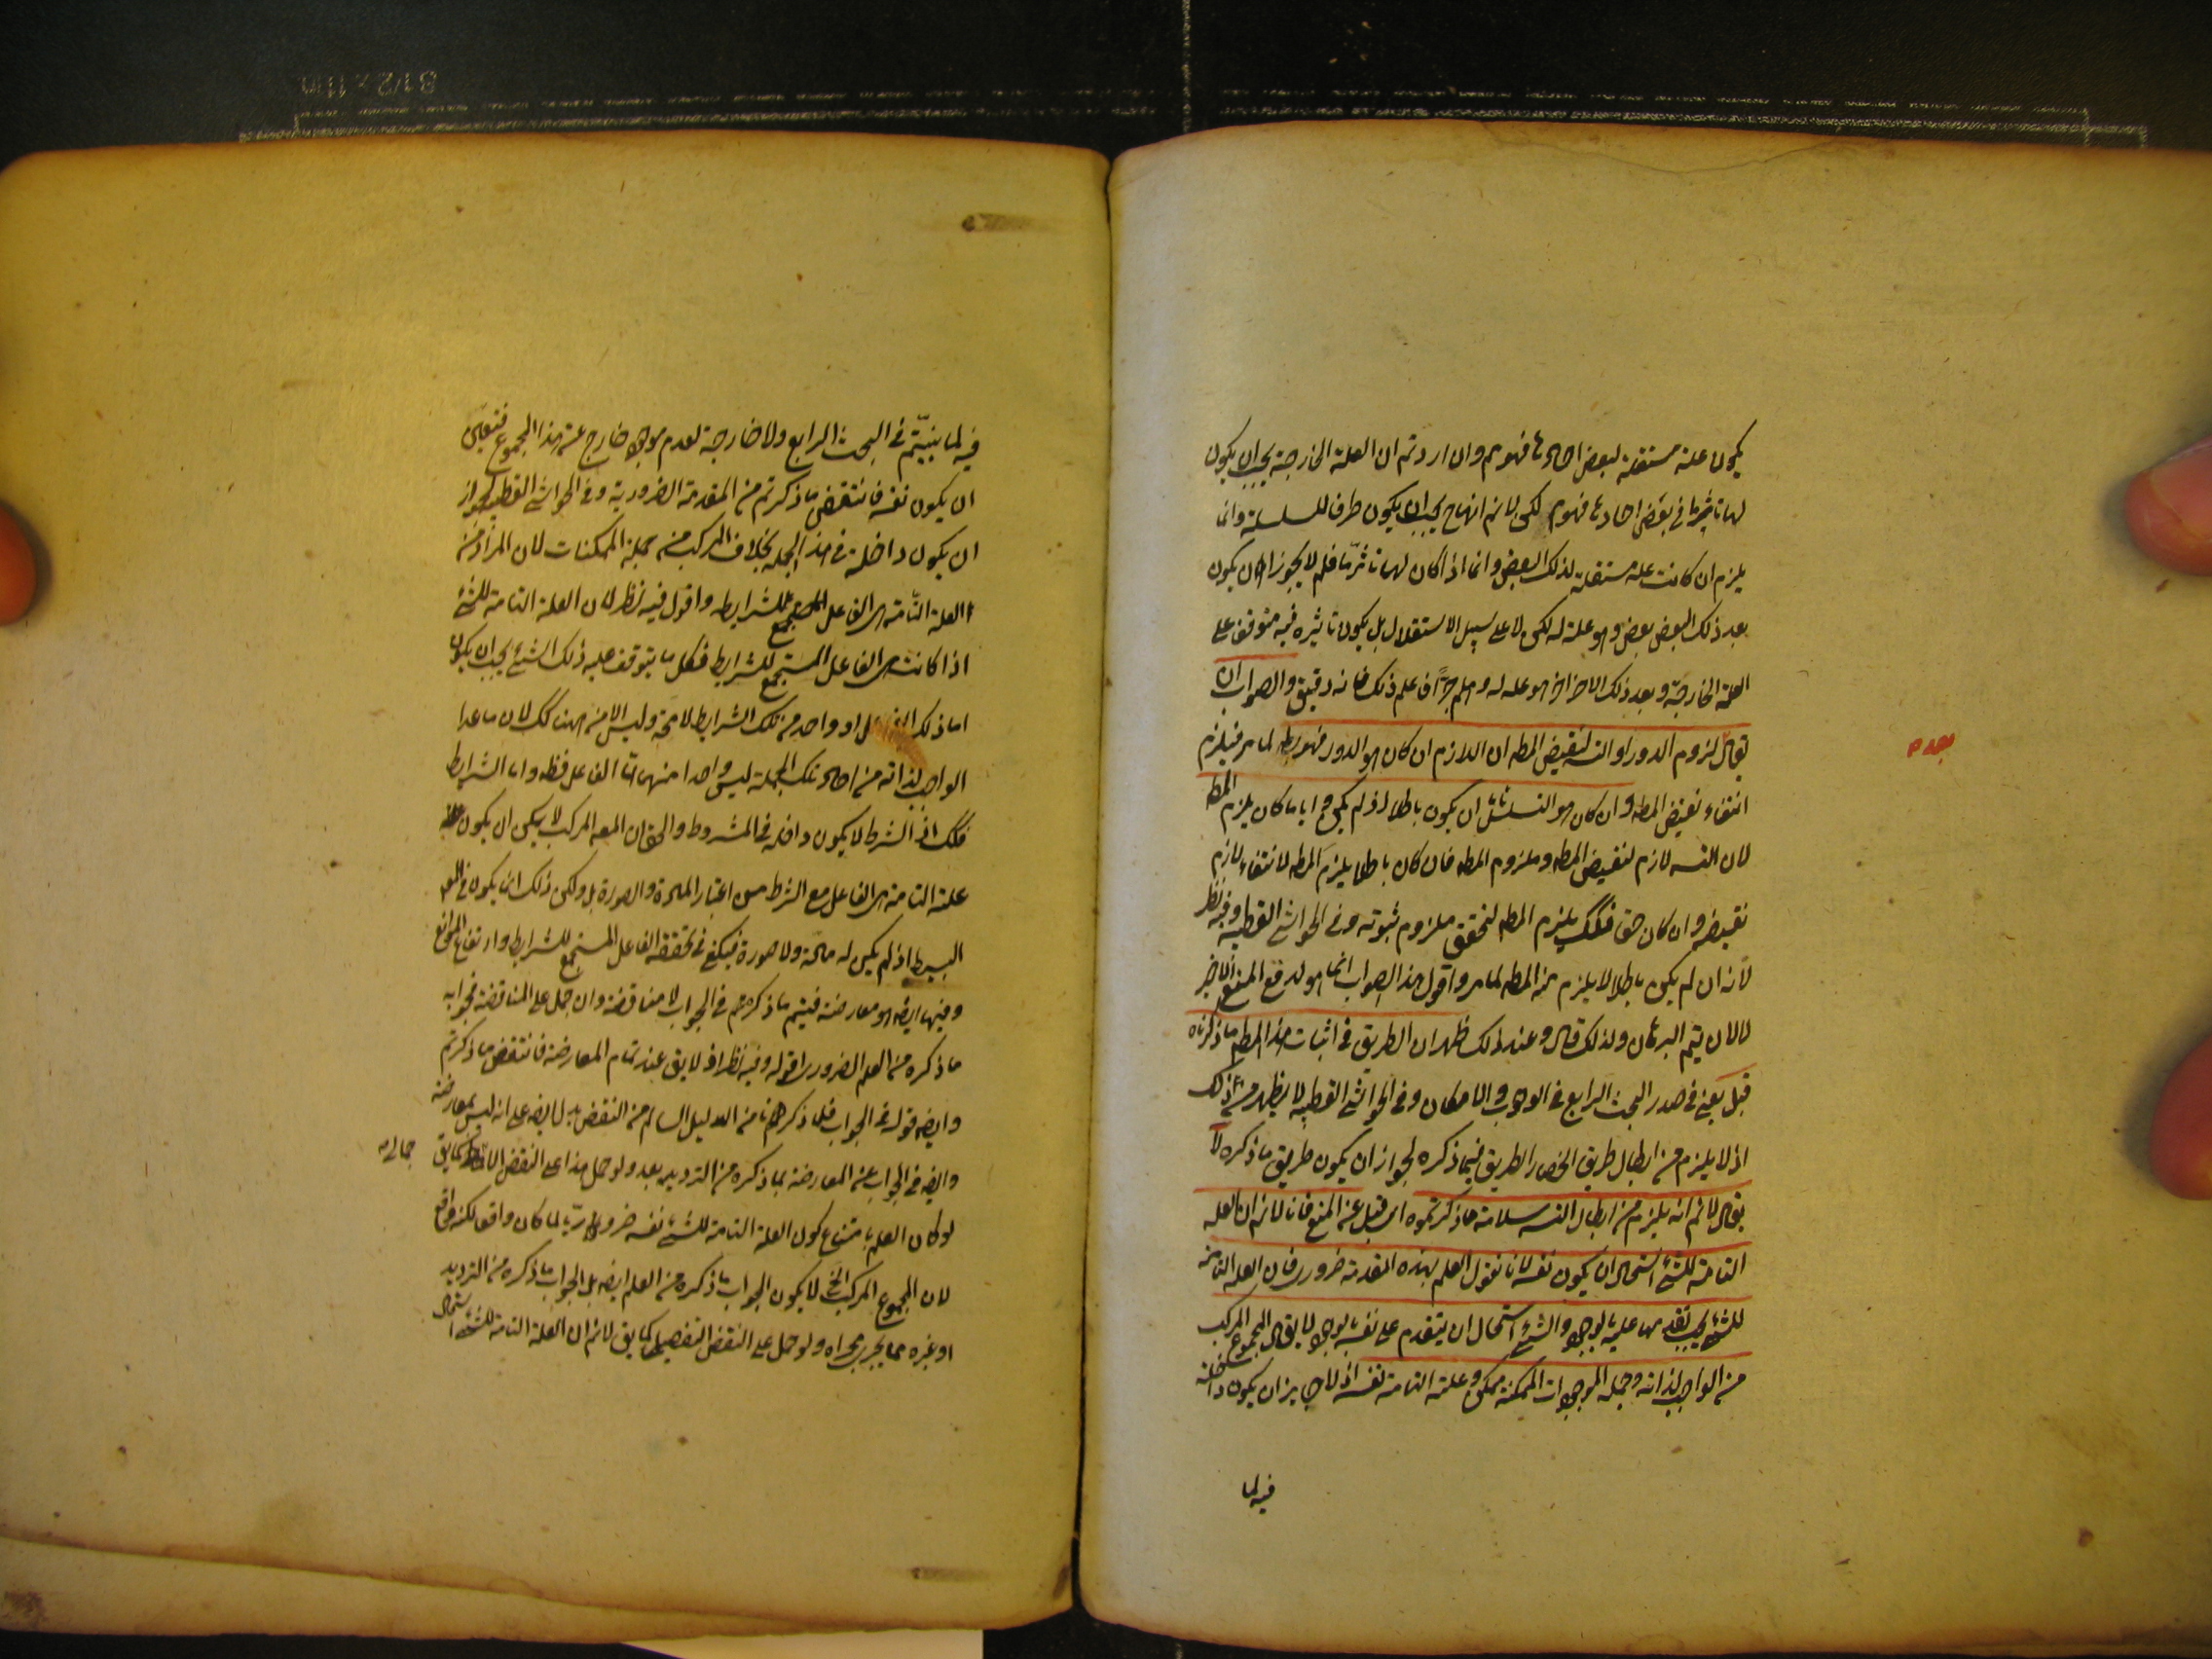 يكون علة مستقلة لبعض احادها فهو مم وان اردتم ان العلة الخارجة يجب ان يكون
لها تاثير ما في بعض احادها فهو مم لكن لا نم انها ح يجب ان يكون طرفا للسلسلة وانما
يلزم ان كانت علة مستقلة لذلك البعض واما اذا كان لها تاثير ما فلم لا يجوز ان يكون
بعد ذلك البعض بعض وهو علة له لكن لا على سبيل الاستقلال بل يكون تاثيره فيه متوقف على
العلة الخارجة وبعد ذلك الاخر اخر هو علة له وهلم جرا فاعلم ذلك فانه دقيق والصواب ان
يقال لزوم الدور او التسه لنقيض المطه ان اللازم ان كان هو الدور فهو بط لما مر فيلزم
انتفاء نقيض المطه وان كان هو التسلسل ان يكون باطلا اذ لم يكن ح ايا ما كان يلزم المطه
لان التسه لازم لنقيض المطه وملزوم المطه فان كان باطلا يلزم المطه لانتفاء لازم
نقيضه وان كان حقا فكك يلزم المطه لتحقق ملزوم ثبوته وفي الحواشي القطبية وفيه نظر
لانه ان لم يكن باطلا لا يلزم منه المطه لما مر واقول هذا الصواب انما هو لدفع المنع الاخير
لا لان يتم البرهان ولذلك قال وعند ذلك ظهر ان الطريق في اثبات هذا المطه ما ذكرناه
قبل يعني في صدر البحث الرابع في الوجوب والامكان وفي الحواشي القطبية لا يظهر من ذلك
اذ لا يلزم من ابطال طريق انحصار الطريق فيما ذكره لجواز ان يكون طريق ما ذكره لا
يقال لا نم انه يلزم من ابطال التسه سلامة ما ذكرتموه اي قبل عن المنع فانا لا نم ان العلة
التامة للشئ استحال ان يكون نفسه لانا نقول العلم بهذه المقدمة ضروري فان العلة التامة
للشئ يجب تقدمها عليه بالوجود والشئ استحال ان يتقدم على نفسه بالوجود لا يقال المجموع المركب
من الواجب لذاته وجملة الموجودات الممكنة ممكن وعلته التامة نفسه اذ لا جايز ان يكون داخلة
فيه لما
فيه لما بينتم في البحث الرابع ولا خارجة لعدم موجود خارج عن هذا المجموع فتعين
ان يكون نفسه فانتقض ما ذكرتم من المقدمة الضرورية وفي الحواشي القطبية يجوز
ان يكون داخلة في هذا الجملة بخلاف المركب من جملة الممكنات لان المراد من
العلة التامة هي الفاعل المستجمع للشرايط واقول فيه نظر لان العلة التامة للشئ
اذا كانت هي الفاعل المستجمع للشرايط فكل ما يتوقف عليه ذلك الشئ يجب ان يكون
اما ذلك الفاعل او واحد من تلك الشرايط لا محة وليس الامر ههنا كك لان ما عدا
الواجب لذاته من احاد تلك الجملة ليس واحدا منهما اما الفاعل فظه واما الشرايط
فكك اذ الشرط لا يكون داخلا في المشروط والحق ان المعه المركب لا يمكن ان يكون
علته التامة هي الفاعل مع الشرط من اعتبار المادة والصورة بل ولكن ذلك انما يكون في المعه
البسيط اذ لم يكن له مادة ولا صورة فيكفي في تحققه الفاعل المستجمع للشرايط وارتفاع الموانع
وفيها ايضه هو معارضة فيتم ما ذكره في الجواب لا مناقضة وان حمل على المناقضة فجوابه
ما ذكره من العلم الضروري اقوله وفيه نظر اذ لا يق عند تمام المعارضة فانتقض ما ذكرتم
وايضه قوله في الجواب فلما ذكرهم نا من الدليل السالم من النقض يدل ايضه على انه ليس بمعارضة
وايضه في الجواب عن المعارضة بما ذكره من الترديد بعد ولو حمل هذا على النقض كما يق
لو كان العلم بامتناع كون العلة التامة للشئ نفسه ضروريا لما كان واقعا لكنه واقع
لان المجموع المركب الخ لا يكون الجواب ما ذكره من العلم ايضه بل الجواب ما ذكره من الترديد
او غيره مما يجري مجراه ولو حمل على النقض التفصيلي كما يق لا نم ان العلة التامة للشئ استحال